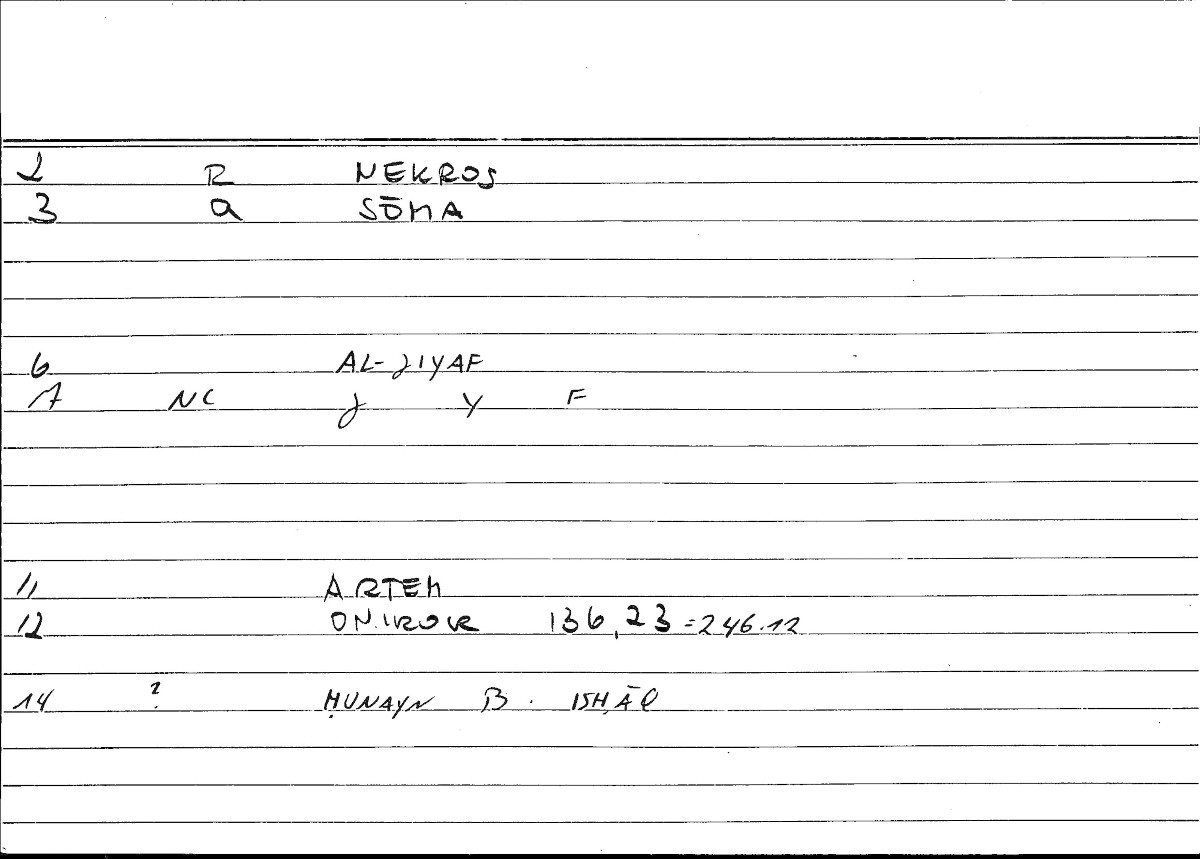 2 R NEKROS
3 a SŌMA
6 AL-JIYAF
7 NC J Y F
11 ARTEM
12 ONIROKR 136,23=246.12
14 ? ḤUNAYN B. ISḤĀQ